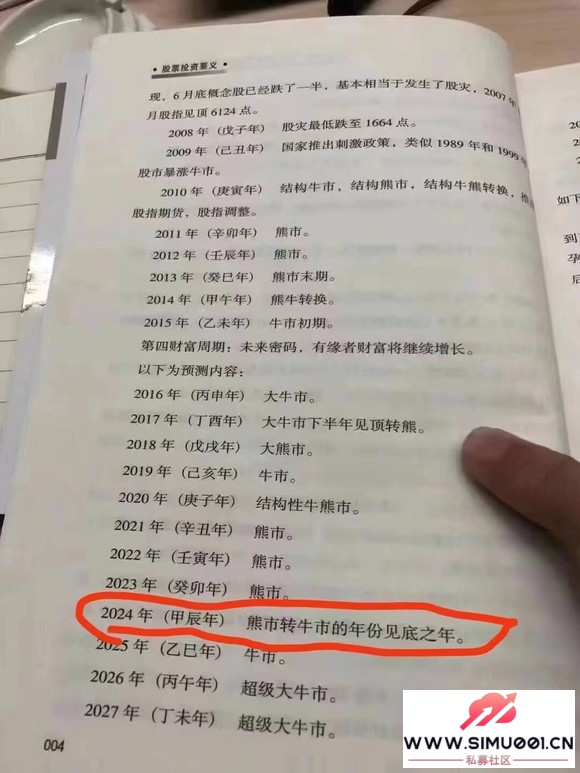 股票投资要义
现，6月底概念股已经跌了一半，基本相当于发生了股灾，2007年
月股指见顶6124点。
2008年（戊子年） 股灾最低跌至1664点。
2009年（己丑年） 国家推出刺激政策，类似1989年和1999年
股市暴涨牛市。
2010年（庚寅年） 结构牛市，结构熊市，结构牛熊转换，推
股指期货，股指调整。
2011年（辛卯年） 熊市。
2012年（壬辰年） 熊市。
2013年（癸巳年） 熊市末期。
2014年（甲午年） 熊牛转换。
2015年（乙未年） 牛市初期。
第四财富周期：未来密码，有缘者财富将继续增长。
以下为预测内容：
2016年（丙申年） 大牛市。
2017年（丁酉年） 大牛市下半年见顶转熊。
2018年（戊戌年） 大熊市。
2019年（己亥年） 牛市。
2020年（庚子年） 结构性牛熊市。
2021年（辛丑年） 熊市。
2022年（壬寅年） 熊市。
2023年（癸卯年） 熊市。
2024年（甲辰年） 熊市转牛市的年份见底之年。
2025年（乙巳年） 牛市。
2026年（丙午年） 超级大牛市。
2027年（丁未年） 超级大牛市。
004
如下
到
孕
后
WWW.SIMU001.CN
私募社区